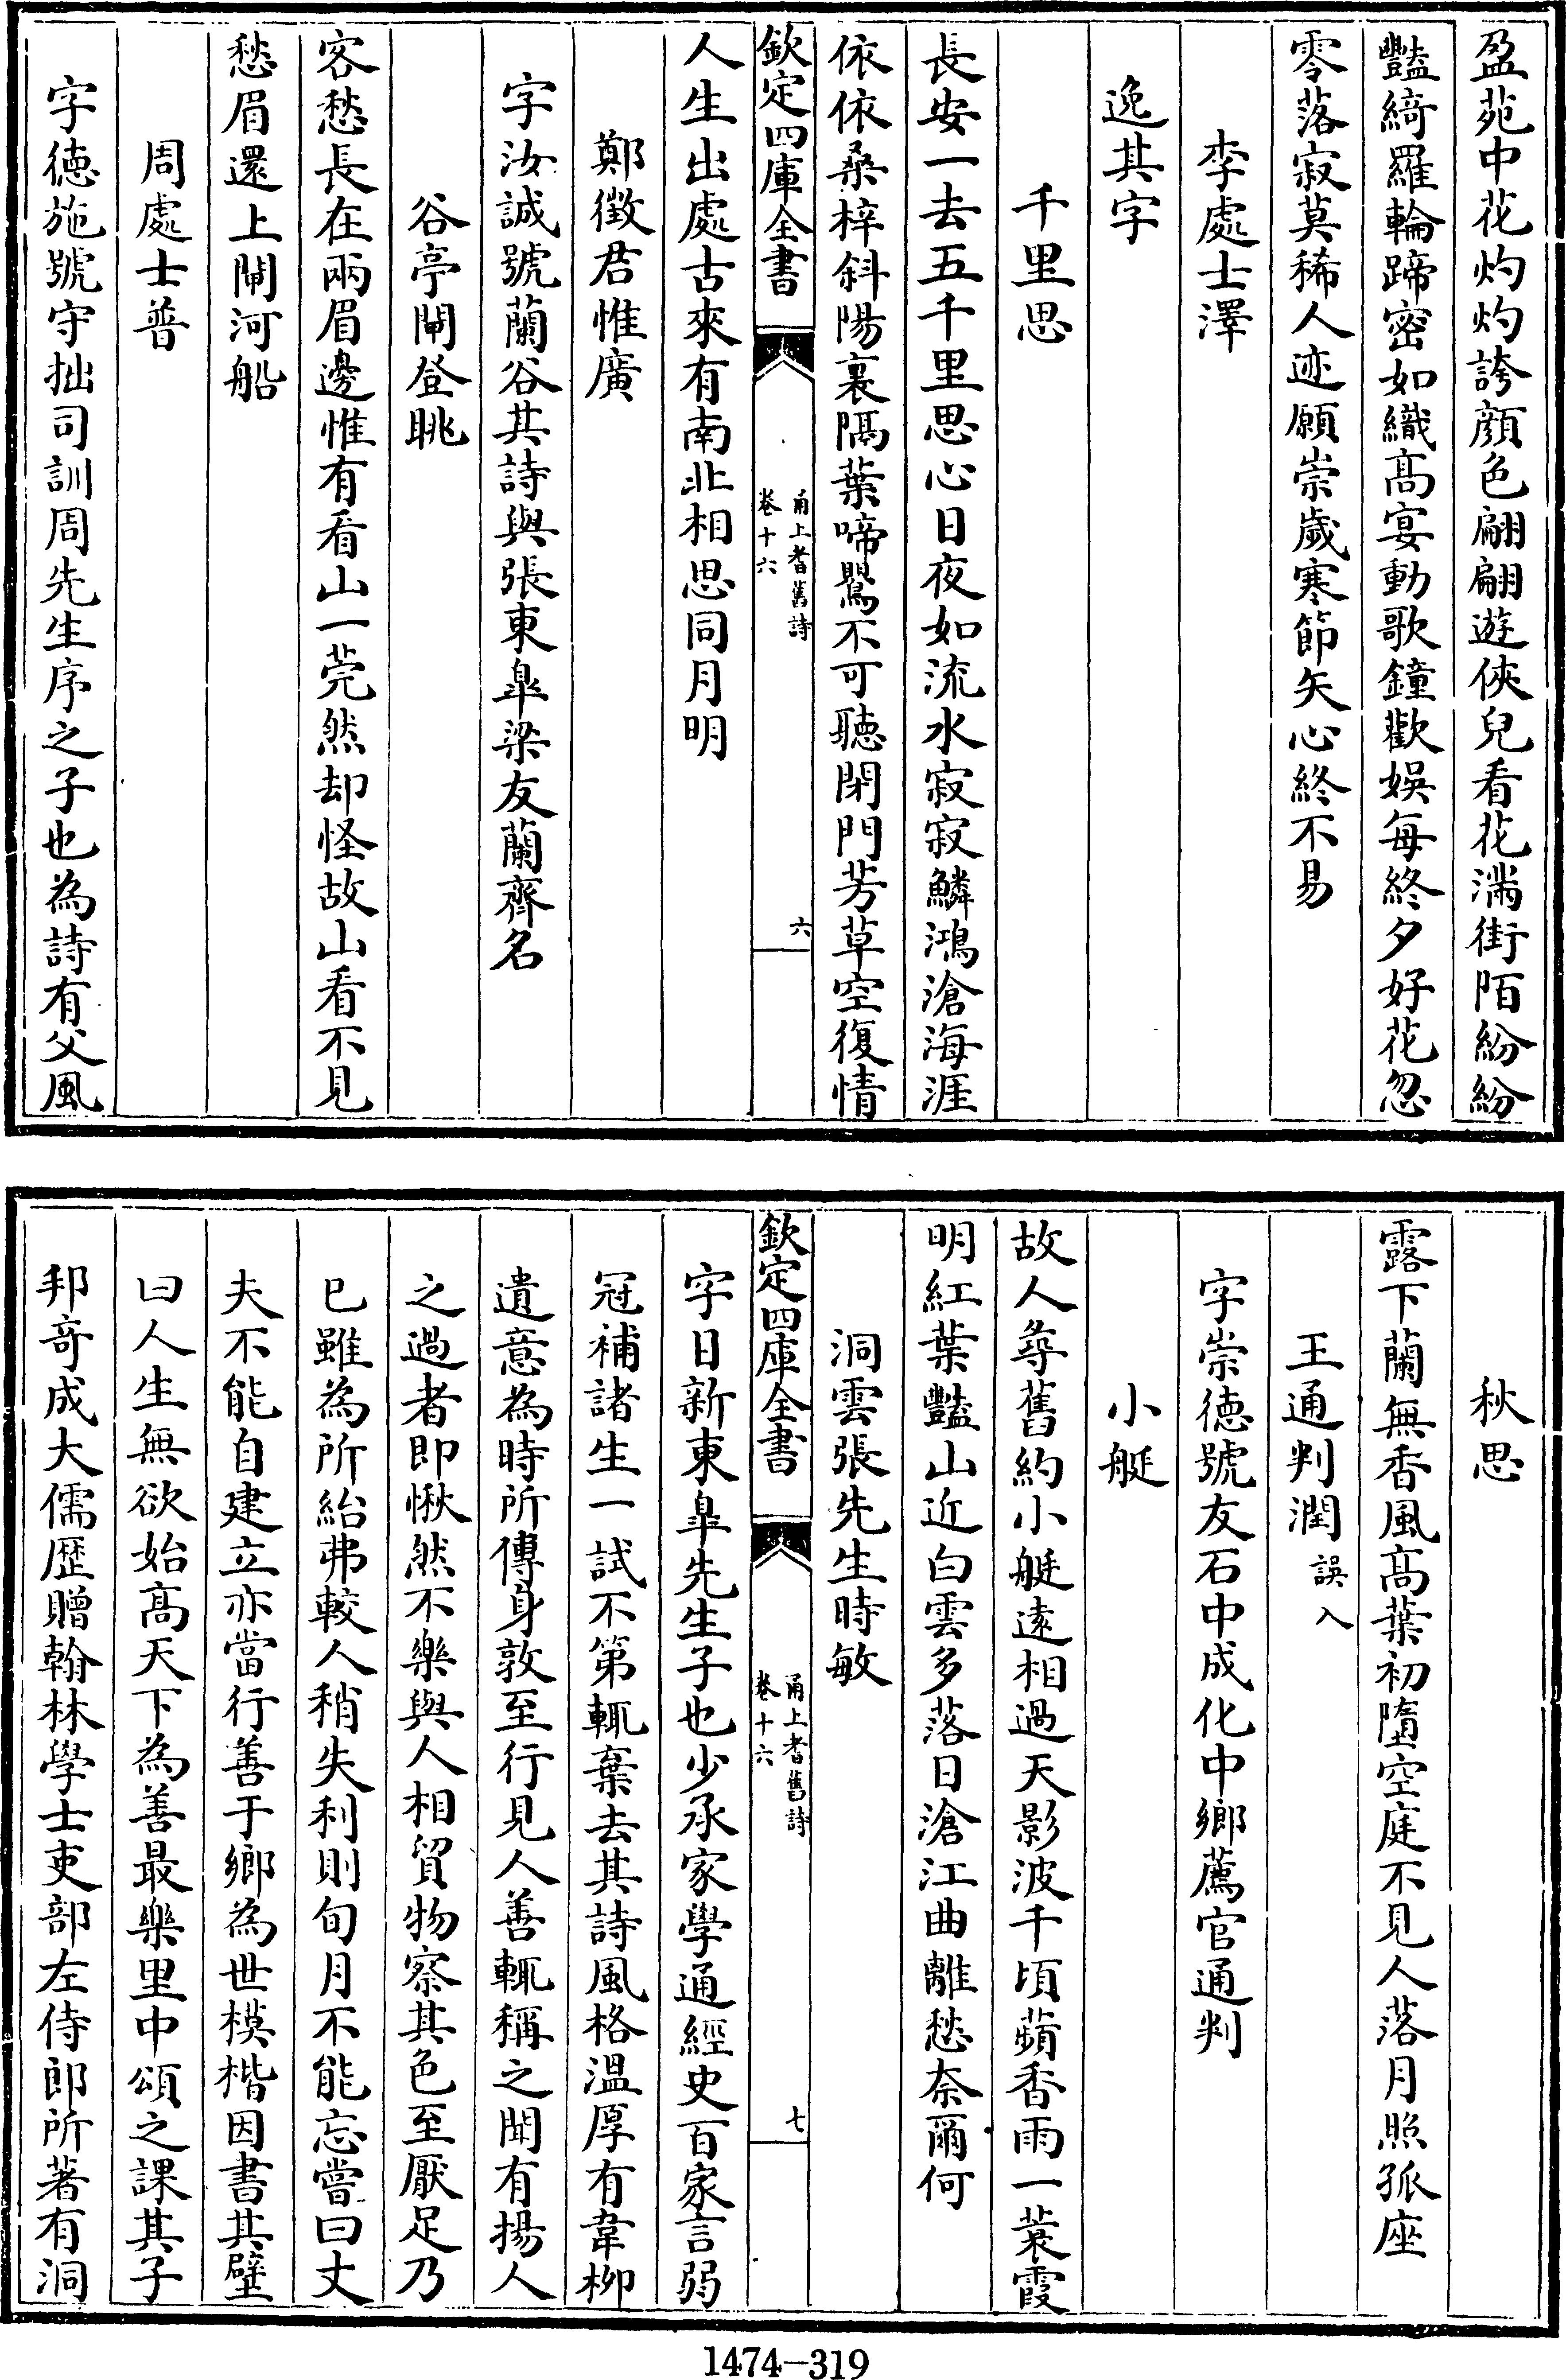 盈苑中花灼灼誇顔色翩翩遊俠兒看花滿街陌紛紛
豔綺羅輪蹄密如織髙宴動歌鐘歡娱每終夕好花忽
零落寂莫稀人迹願崇歲寒節矢心終不易
李處士澤
逸其字
千里思
長安一去五千里思心日夜如流水寂寂鱗鴻滄海涯
依依桑梓斜陽裏隔葉啼鸎不可聽閉門芳草空復情
欽定四庫全書
甬上耆舊詩
卷十六
六
人生出處古來有南北相思同月明
鄭徴君惟廣
字汝誠號蘭谷其詩與張東臯梁友蘭齊名
谷亭閘登眺
客愁長在兩眉邊惟有看山一莞然却怪故山看不見
愁眉還上閘河船
周處士普
字徳施號守拙司訓周先生序之子也為詩有父風
秋思
露下蘭無香風髙葉初墮空庭不見人落月照孤座
王通判潤誤入
字崇徳號友石中成化中鄉薦官通判
小艇
故人尋舊約小艇逺相過天影波千頃蘋香雨一蓑霞
明紅葉豔山近白雲多落日滄江曲離愁奈爾何
洞雲張先生時敏
欽定四庫全書
甬上耆舊詩
卷十六
七
字日新東臯先生子也少承家學通經史百家言弱
冠補諸生一試不第輒棄去其詩風格温厚有韋柳
遺意為時所傳身敦至行見人善輒稱之聞有揚人
之過者即愀然不樂與人相貿物察其色至厭足乃
已雖為所紿弗較人稍失利則旬月不能忘嘗曰丈
夫不能自建立亦當行善于鄉為世模楷因書其壁
曰人生無欲始髙天下為善最樂里中頌之課其子
邦竒成大儒歴贈翰林學士吏部左侍郎所著有洞
1474-319